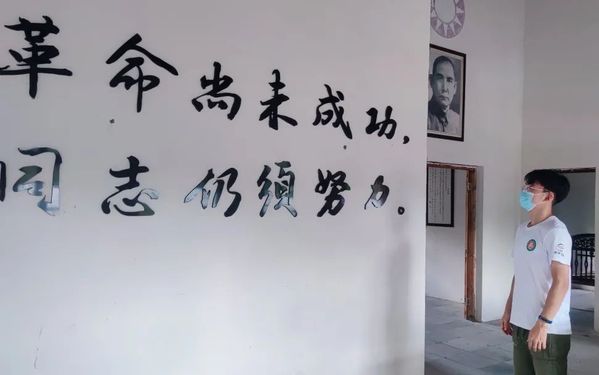 革命尚未成功,
同志仍须努力。